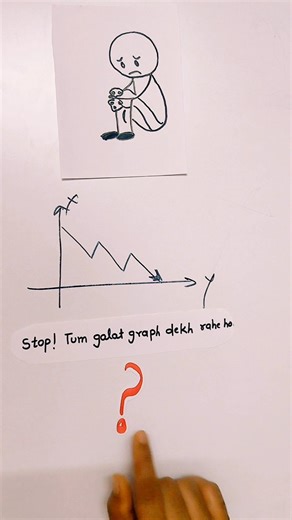 X
Y
Stop! Tum galat graph dekh rahe ho
?